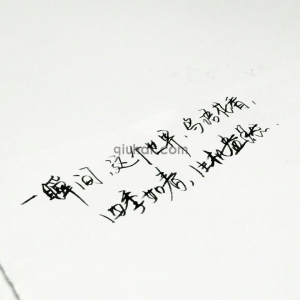 一瞬间,这个世界,鸟语花香,
四季如春,生机盎然.
qiuhan.com